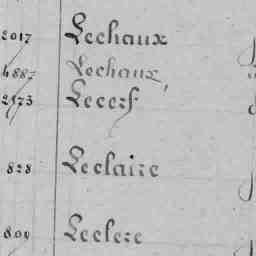 2017 Lechaux
4887 Lechaux,
2173 Lecerf
828 Leclaire
809 Leclerc